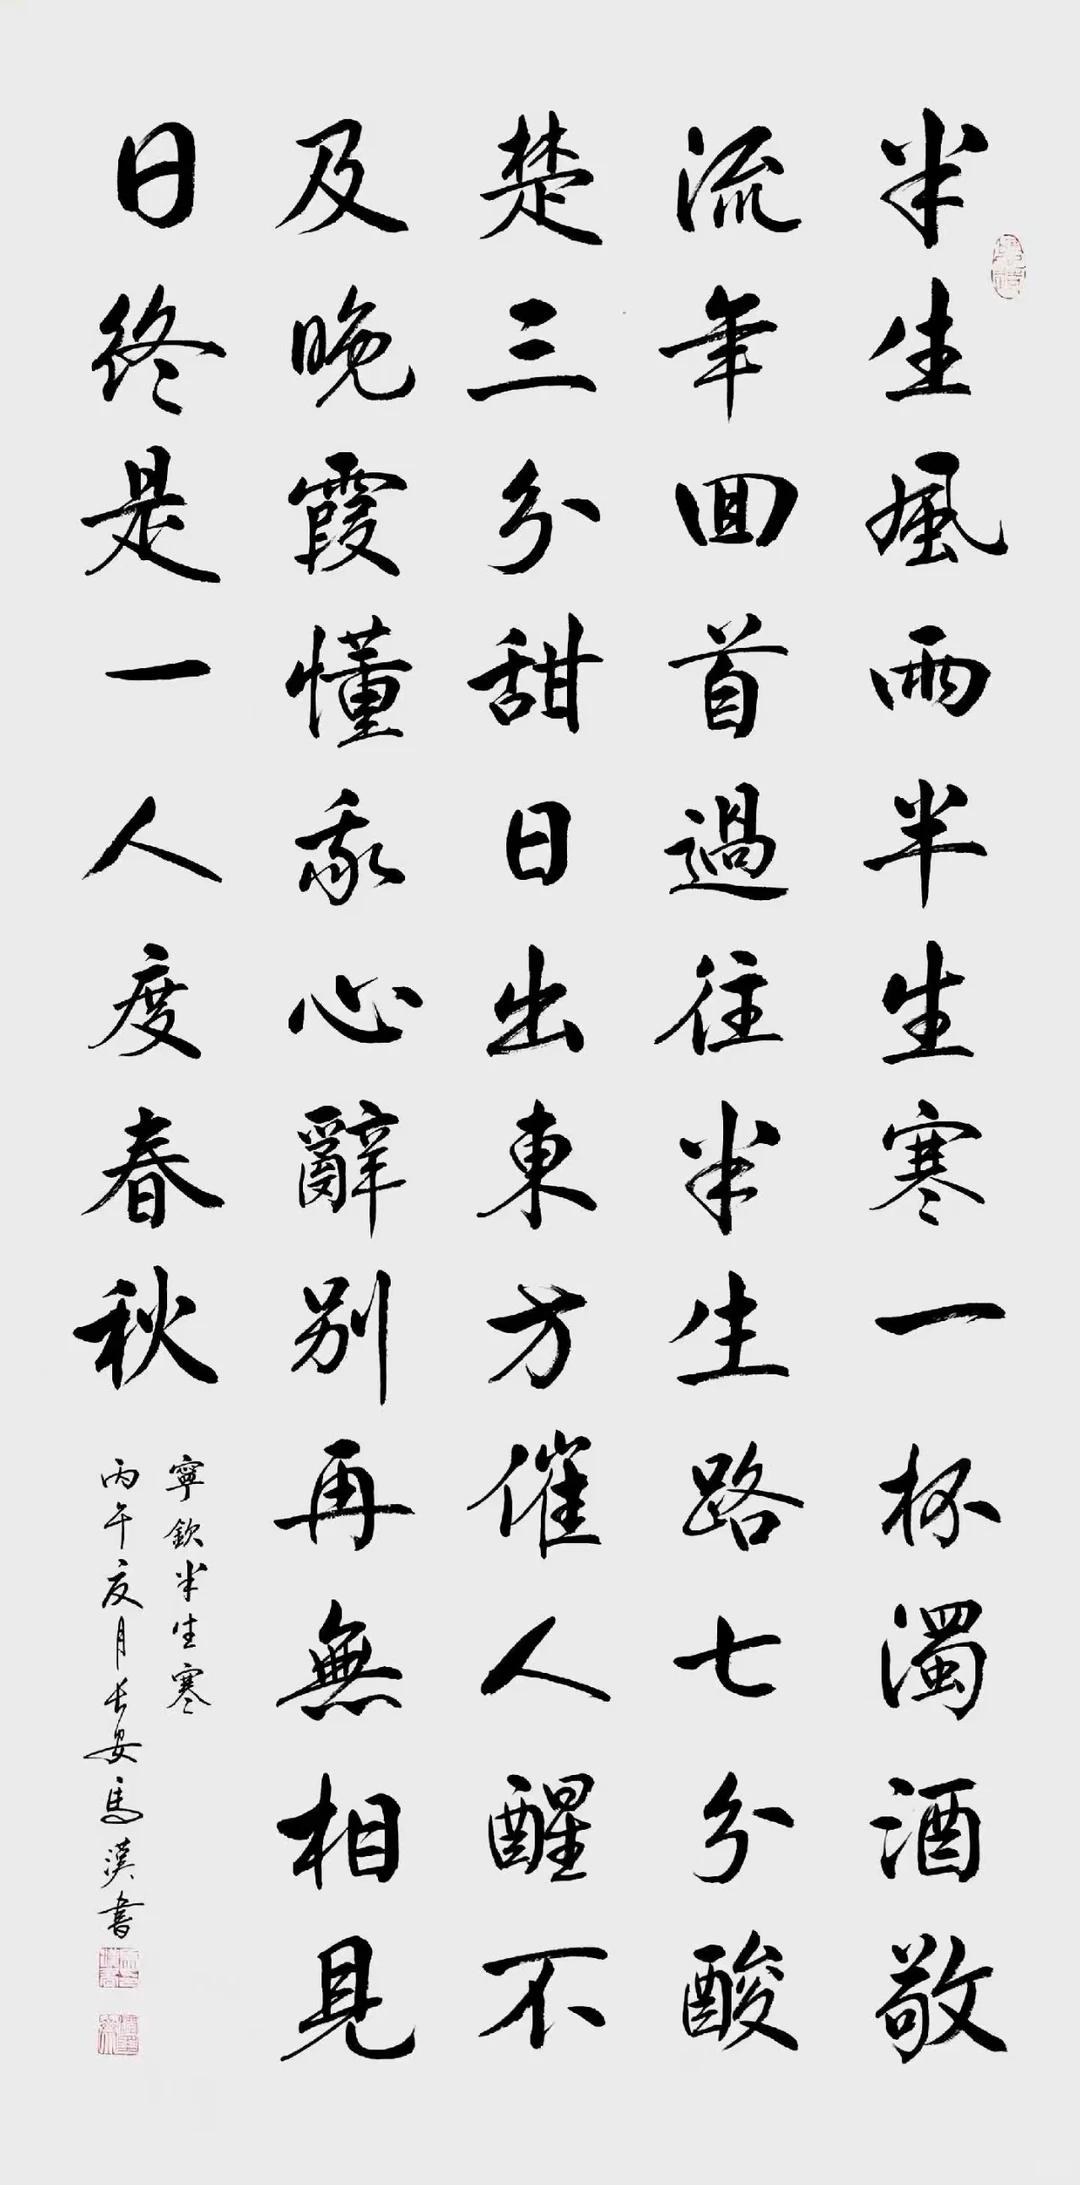 半生風雨半生寒一杯濁酒敬
流年回首過往半生路七分酸
楚三分甜日出東方催人醒不
及晚霞懂我心辭別再無相見
日終是一人度春秋
寧欽半生寒
丙午夏月長安馬漢書